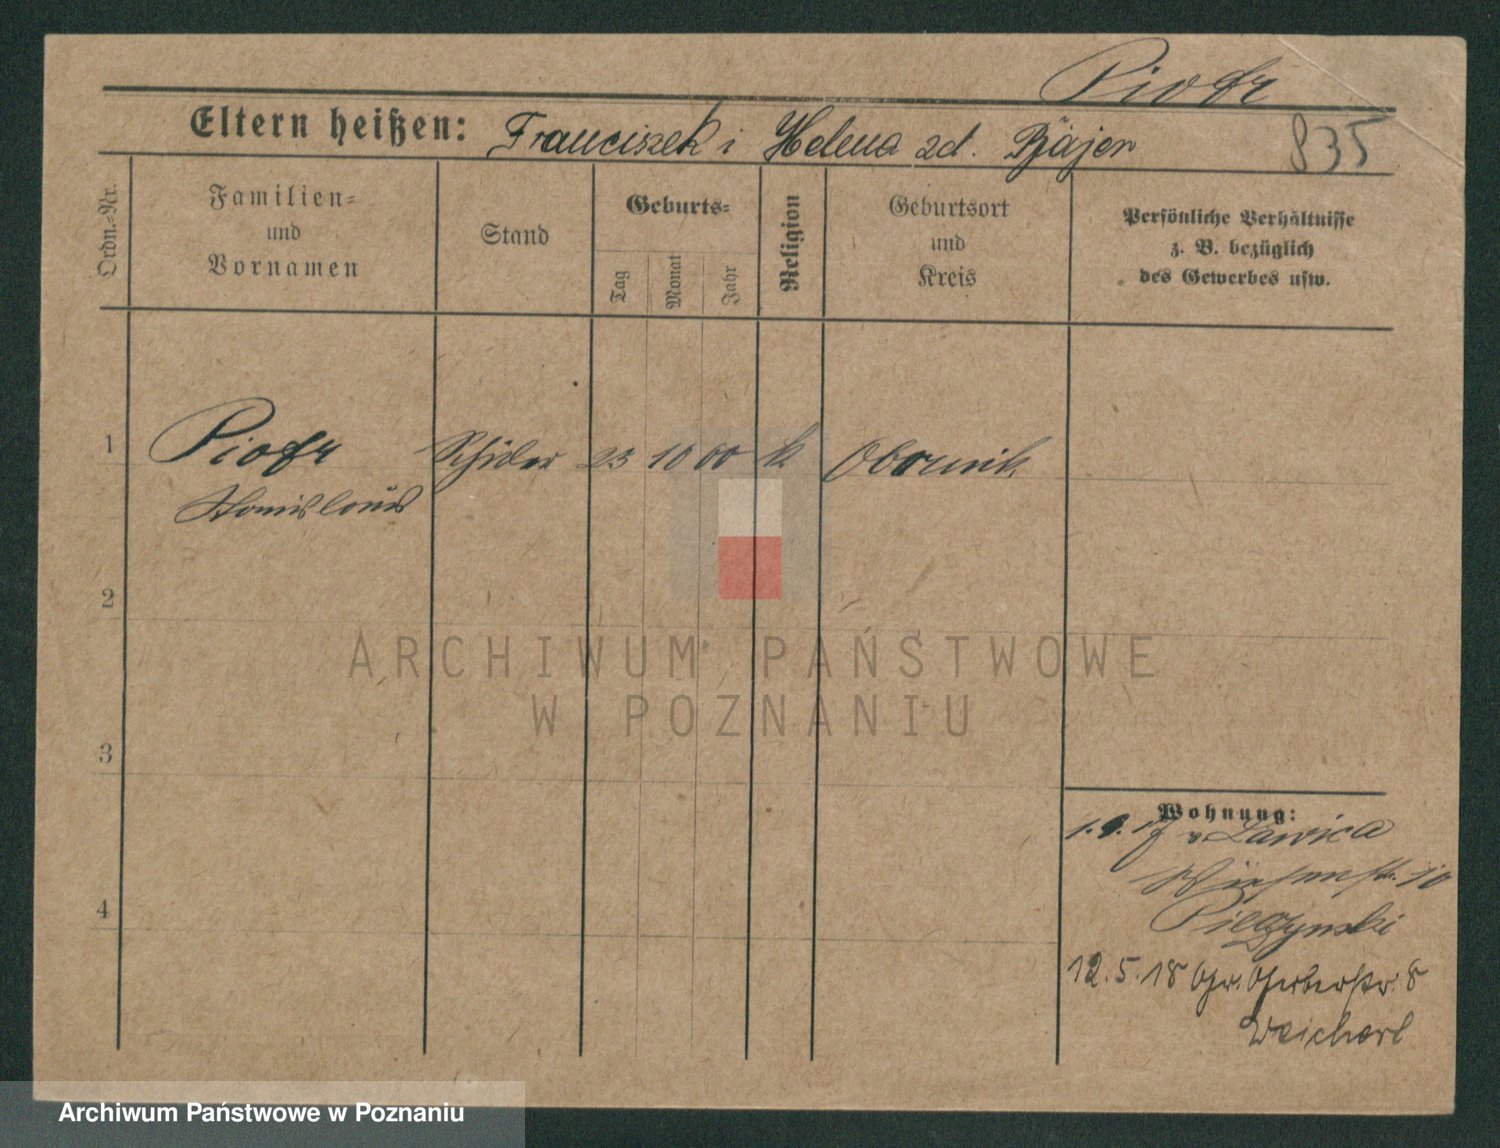 Piotr
Eltern heißen: Franciszek i Helena zd. Bräjer
835
Ordn.-Nr.
Familien-
und
Vornamen
Stand
Geburts-
Tag
Monat
Jahr
Religion
Geburtsort
und
Kreis
Persönliche Verhältnisse
z. B. bezüglich
des Gewerbes usw.
1 Piotr Schüler 23 10 00 k Obornik
Stanislaus
2
3
4
Wohnung:
1.9.17 v Lawica
10
Pilczynski
12.5.18 Gr. Gerberstr. 8
Weichert
ARCHIWUM PAŃSTWOWE
W POZNANIU
Archiwum Państwowe w Poznaniu